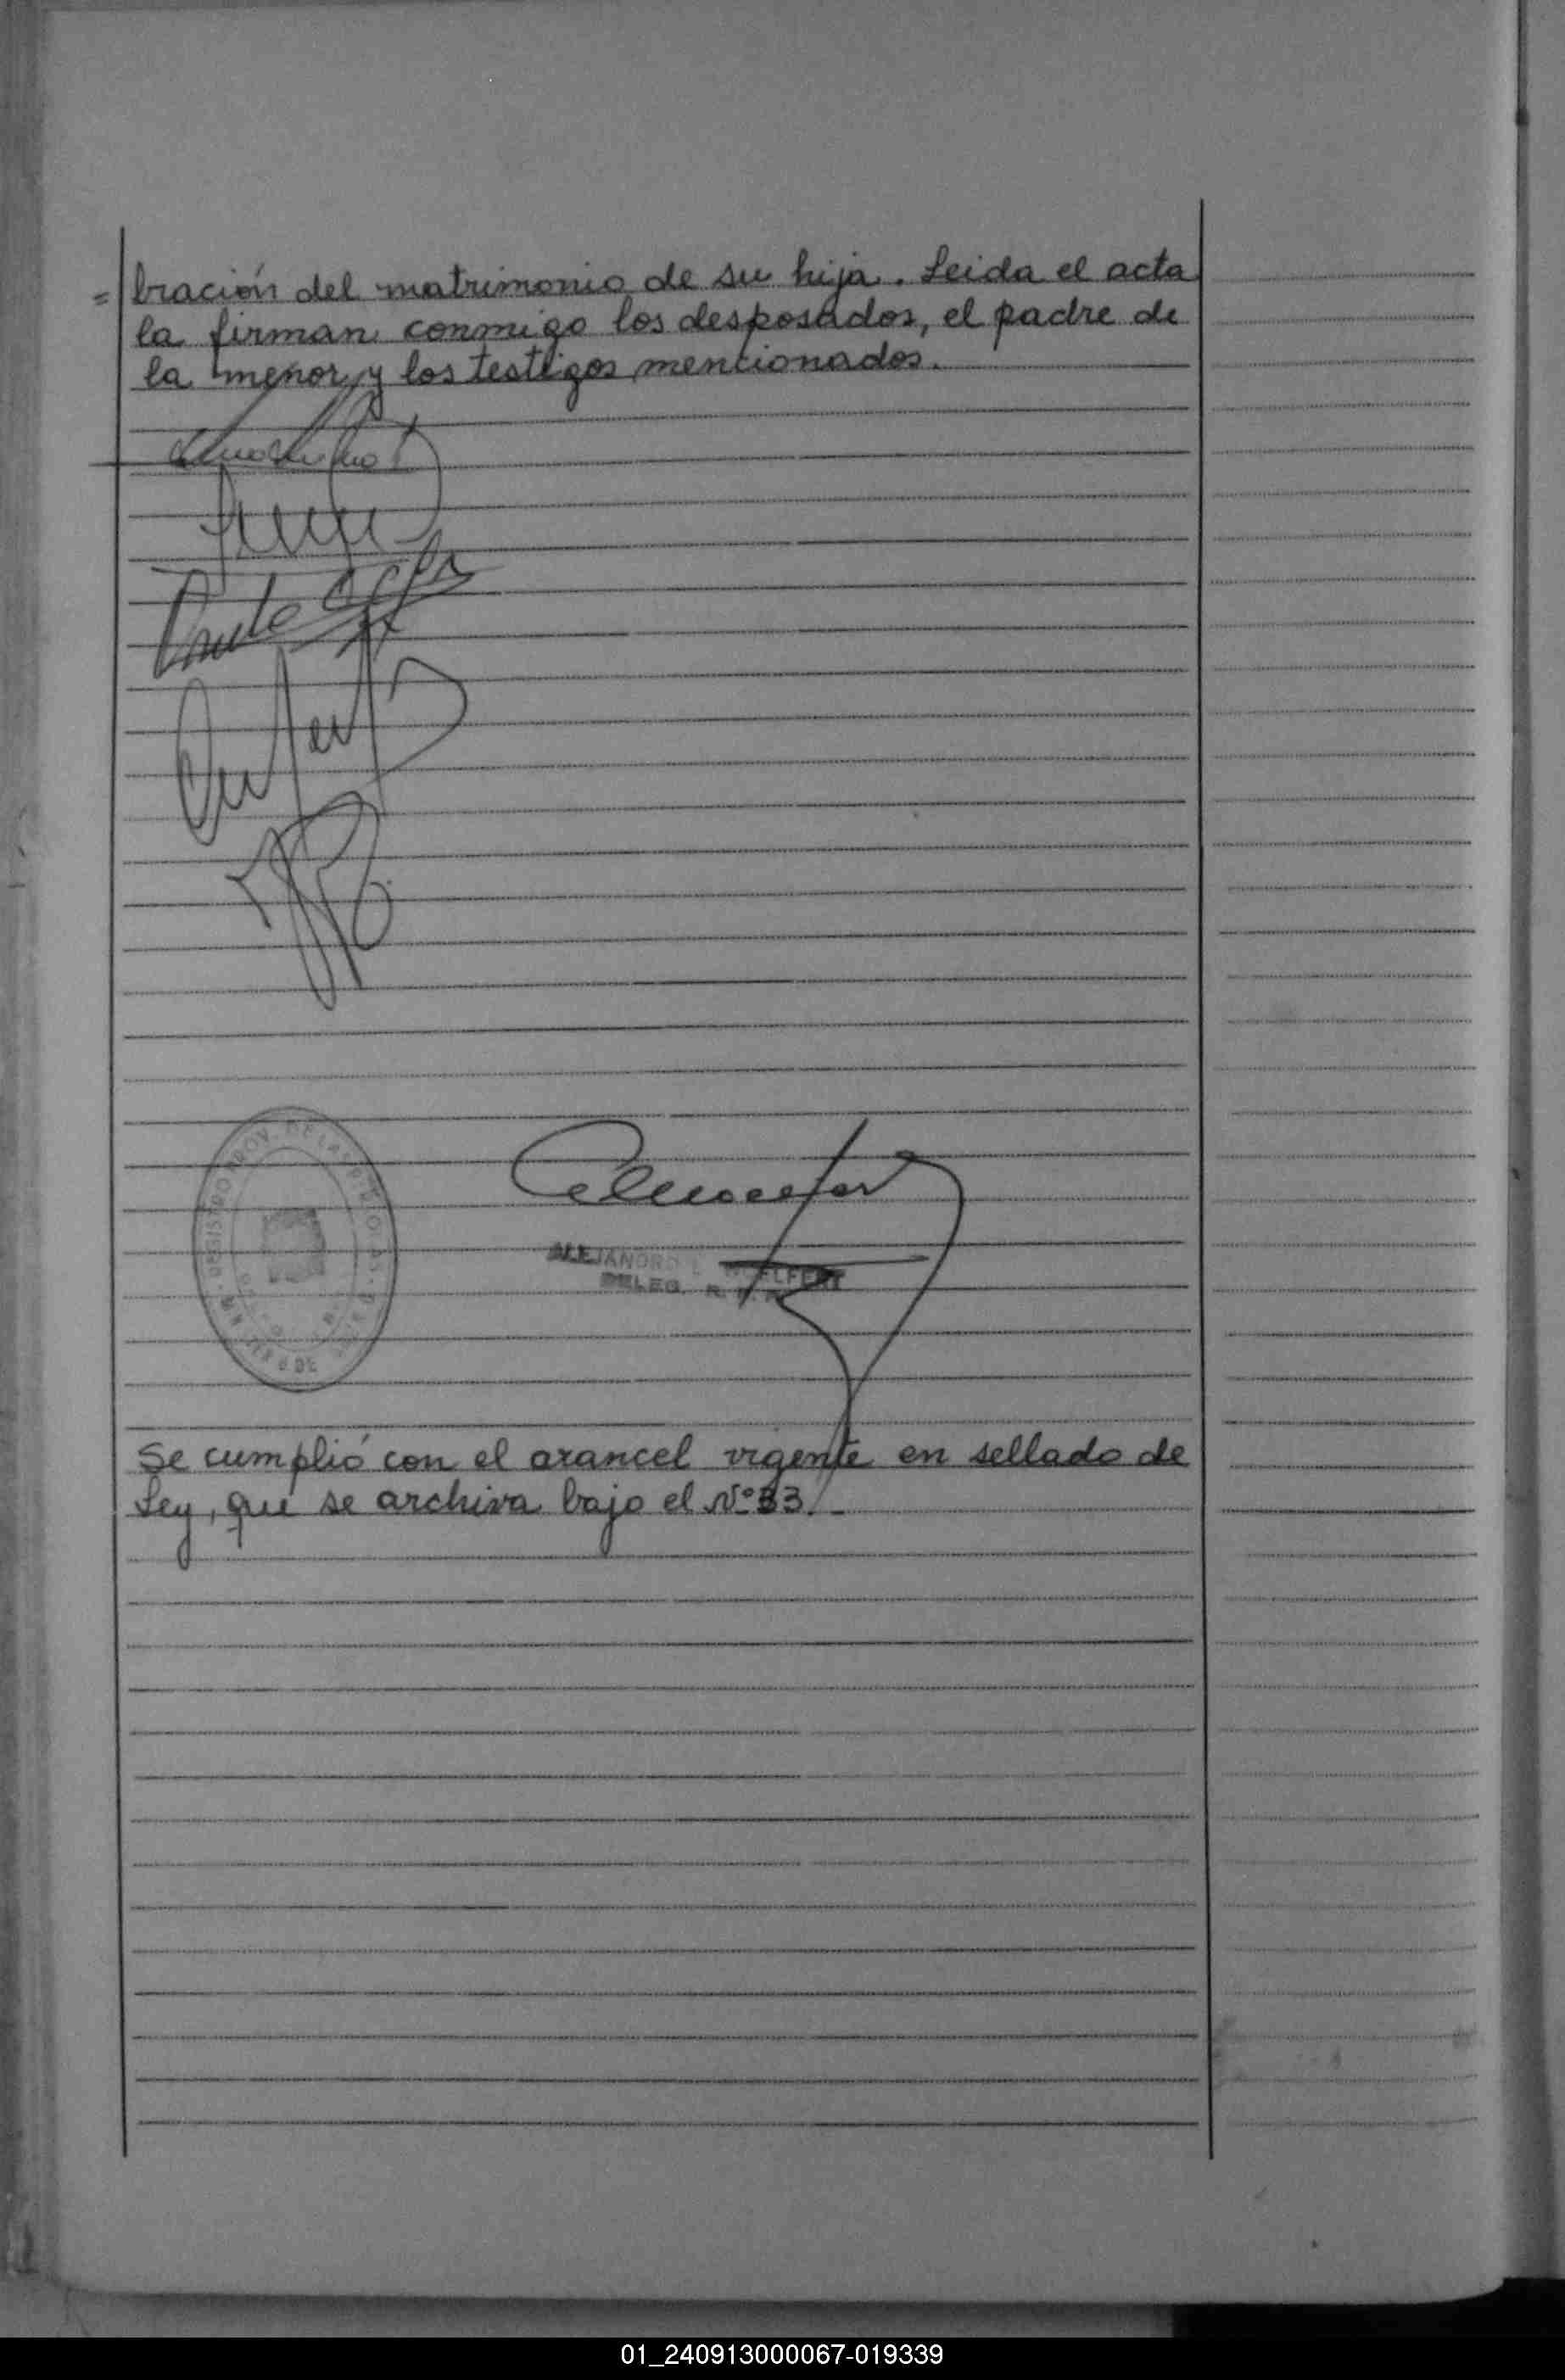 = bración del matrimonio de su hija. Leida el acta
la firman conmigo los desposados, el padre de
la menor y los testigos mencionados.
ALEJANDRO
DELEG. R.
Se cumplió con el arancel vigente en sellado de
Ley, que se archiva bajo el Nº 33.-
01_240913000067-019339